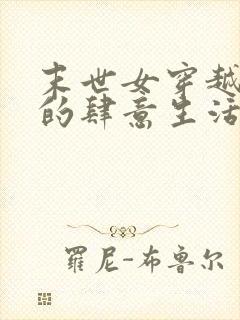 末世女穿越
的肆意生活
羅尼-布魯尔